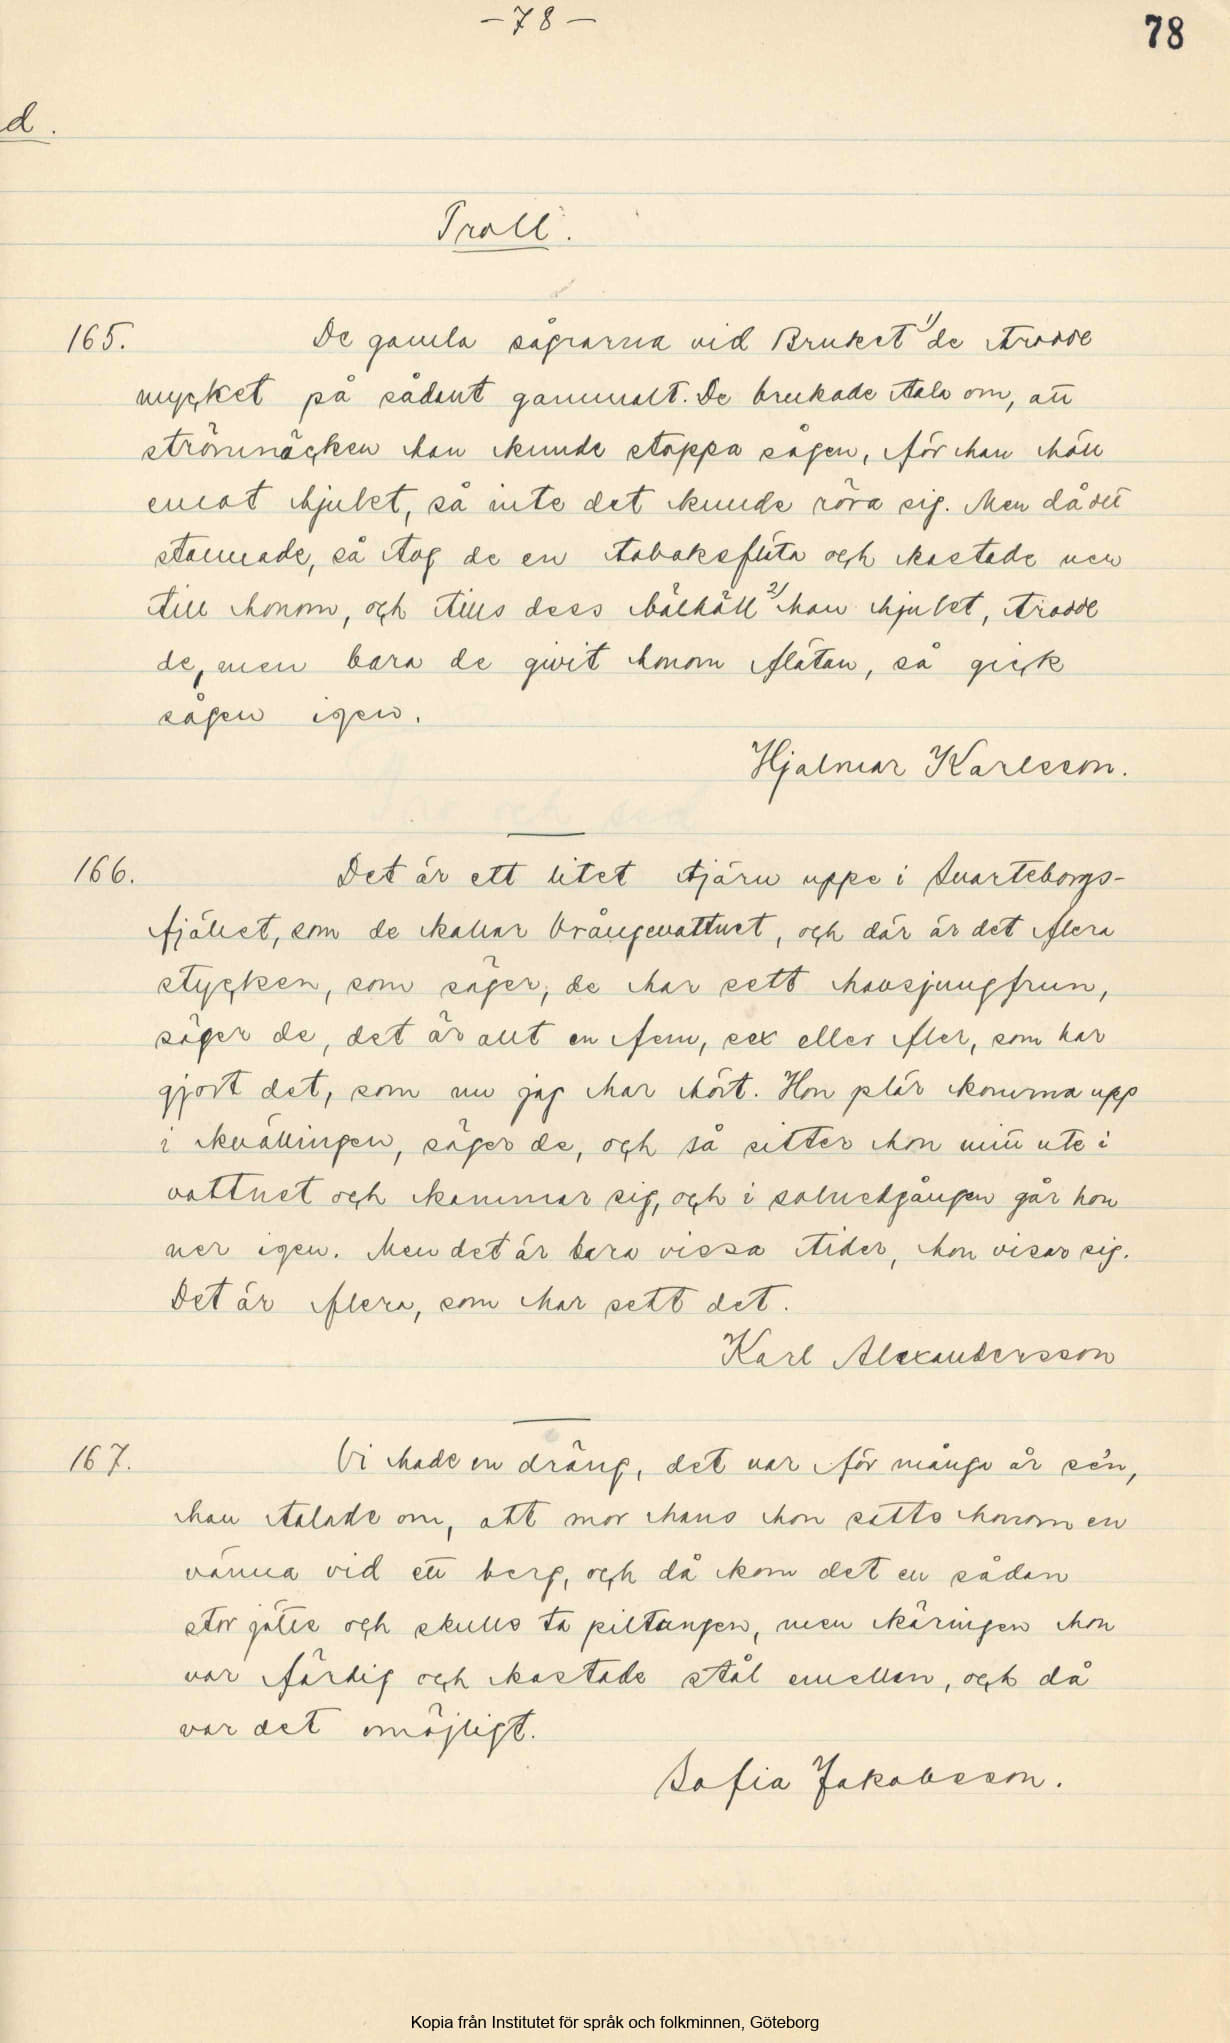 – 78 –
78
d.
Troll.
165. De gamla sågrarna vid Bruket 1) de trodde
mycket på sådant gammalt. De brukade tala om, att
strömnäcken han kunde stoppa sågen, för han höll
emot hjulet, så inte det kunde röra sig. Men då det
stannade, så tog de en tobaksfläta och kastade ner
till honom, och tills dess hålhöll 2) han hjulet, trodde
de, men bara de givit honom flätan, så gick
sågen igen.
Hjalmar Karlsson.
166. Det är ett litet tjärn uppe i Svarteborgs-
fjället, som de kallar Vrångevattnet, och där är det flera
stycken, som säger, de har sett havsjungfrun,
säger de, det är allt en fem, sex eller fler, som har
gjort det, som nu jag har hört. Hon plär komma upp
i kvällingen, säger de, och så sitter hon mitt ute i
vattnet och kammar sig, och i solnedgången går hon
ner igen. Men det är bara vissa tider, hon visar sig.
Det är flera, som har sett det.
Karl Alexandersson
167. Vi hade en dräng, det var för många år sén,
han talade om, att mor hans hon satte honom en
vänna vid ett berg, och då kom det en sådan
stor jätte och skulle ta piltungen, men käringen hon
var färdig och kastade stål emellan, och då
var det omöjligt.
Sofia Jakobsson.
Kopia från Institutet för språk och folkminnen, Göteborg